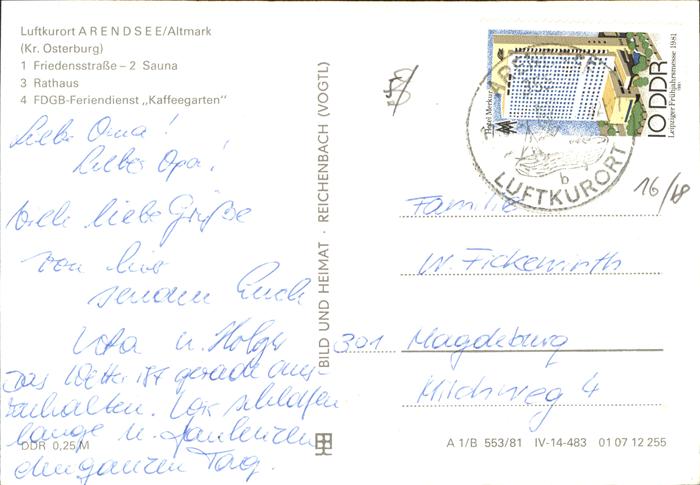 Luftkurort ARENDSEE/Altmark
(Kr. Osterburg)
1 Friedensstraße – 2 Sauna
3 Rathaus
4 FDGB-Feriendienst „Kaffeegarten"
Liebe Oma!
Lieber Opa!
Viele liebe Grüße
von hier
senden Euch
u. Holger
Das Wetter ist gerade aus-
zuhalten. Wir schlafen
lange u. faulenzen
den ganzen Tag.
DDR 0,25 M
BILD UND HEIMAT · REICHENBACH (VOGTL)
Hotel Merkur
10 DDR
Leipziger Frühjahrsmesse 1981
LUFTKURORT
b
16/
Familie
W. Fickewirth
301 Magdeburg
Milchweg 4
A 1/B 553/81 IV-14-483 01 07 12 255